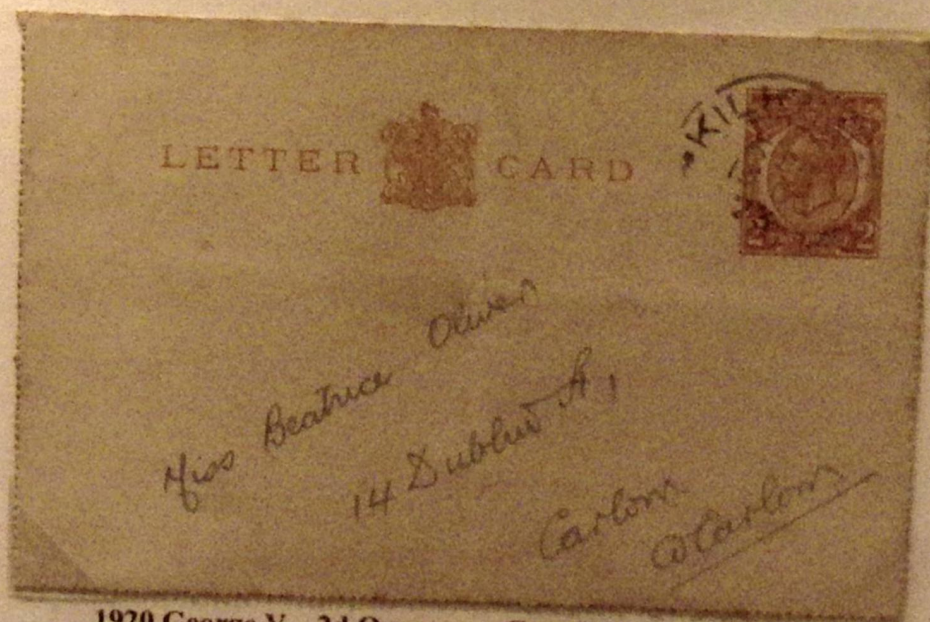 LETTER CARD
KIL
2 2
Miss Beatrice Oliver
14 Dublin St,
Carlow
Co Carlow
1920 George V